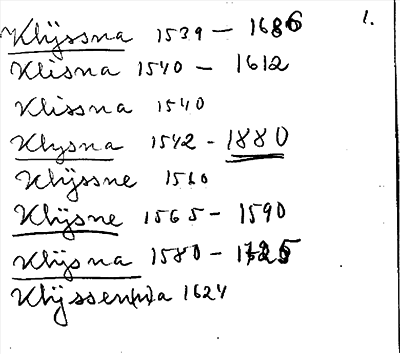 Klÿssna 1539 – 1686 1.
Klisna 1540 – 1612
Klissna 1540
Klysna 1542 - 1880
Klÿssne 1560
Klÿsne 1565 – 1590
Klÿsna 1580 –
Klÿssen(n)a 1624